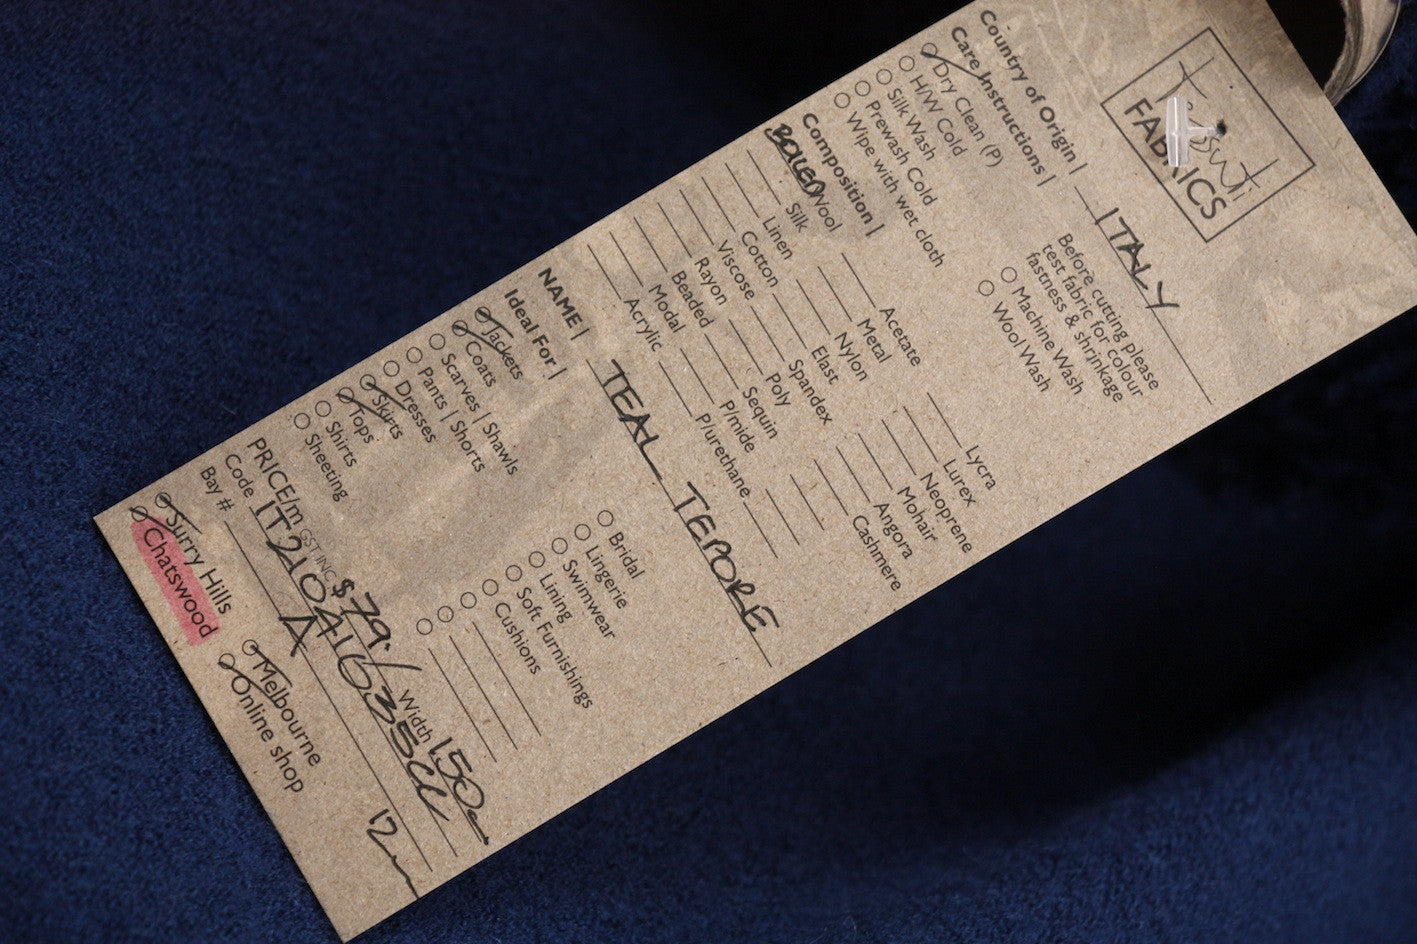 tessuti
FABRICS
Country of Origin | ITALY
Care Instructions |
Before cutting please
test fabric for colour
fastness & shrinkage
Dry Clean (P)
H/W Cold
Silk Wash
Prewash Cold
Wipe with wet cloth
Machine Wash
Wool Wash
Composition |
BOILED Wool
Silk
Linen
Cotton
Viscose
Rayon
Beaded
Modal
Acrylic
Acetate
Metal
Nylon
Elast
Spandex
Poly
Sequin
P/mide
P/urethane
Lycra
Lurex
Neoprene
Mohair
Angora
Cashmere
NAME | TEAL TEPORE
Ideal For |
Jackets
Coats
Scarves | Shawls
Pants | Shorts
Dresses
Skirts
Tops
Shirts
Sheeting
Bridal
Lingerie
Swimwear
Lining
Soft Furnishings
Cushions
PRICE/m GST INC $79. Width 150
Code
Bay # A
Surry Hills
Chatswood
Melbourne
Online shop